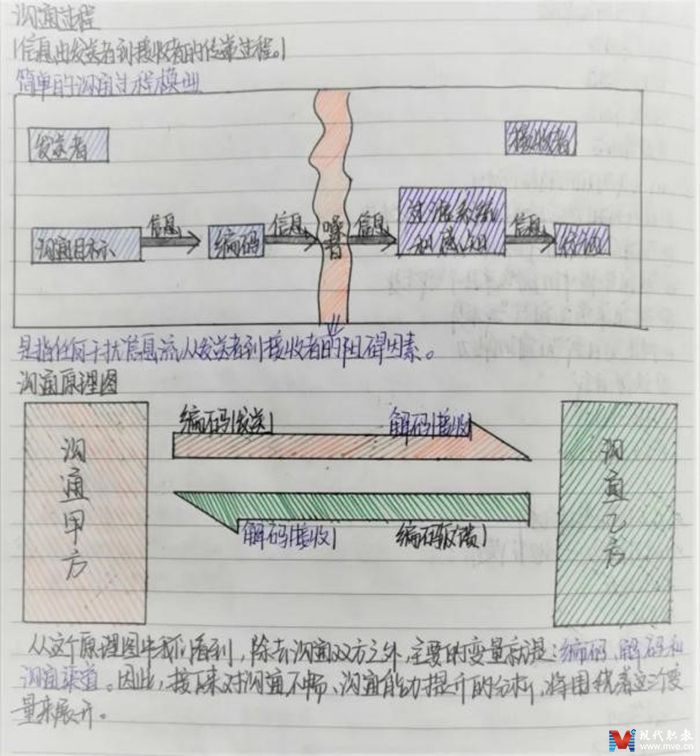 沟通过程
(信息由发送者到接收者的传递过程。)
简单的沟通过程模型
发送者
接收者
沟通目标
信息
编码
信息
噪音
信息
过滤系统和感知
信息
解码
是指任何干扰信息流从发送者到接收者的阻碍因素。
沟通原理图
沟通甲方
编码(发送)
解码(接收)
解码(接收)
编码(反馈)
沟通乙方
从这个原理图中我们看到,除去沟通双方之外,主要的变量就是:编码、解码和
沟通渠道。因此,接下来对沟通不畅、沟通能力提升的分析,将围绕着这三个变
量来展开。
现代职教